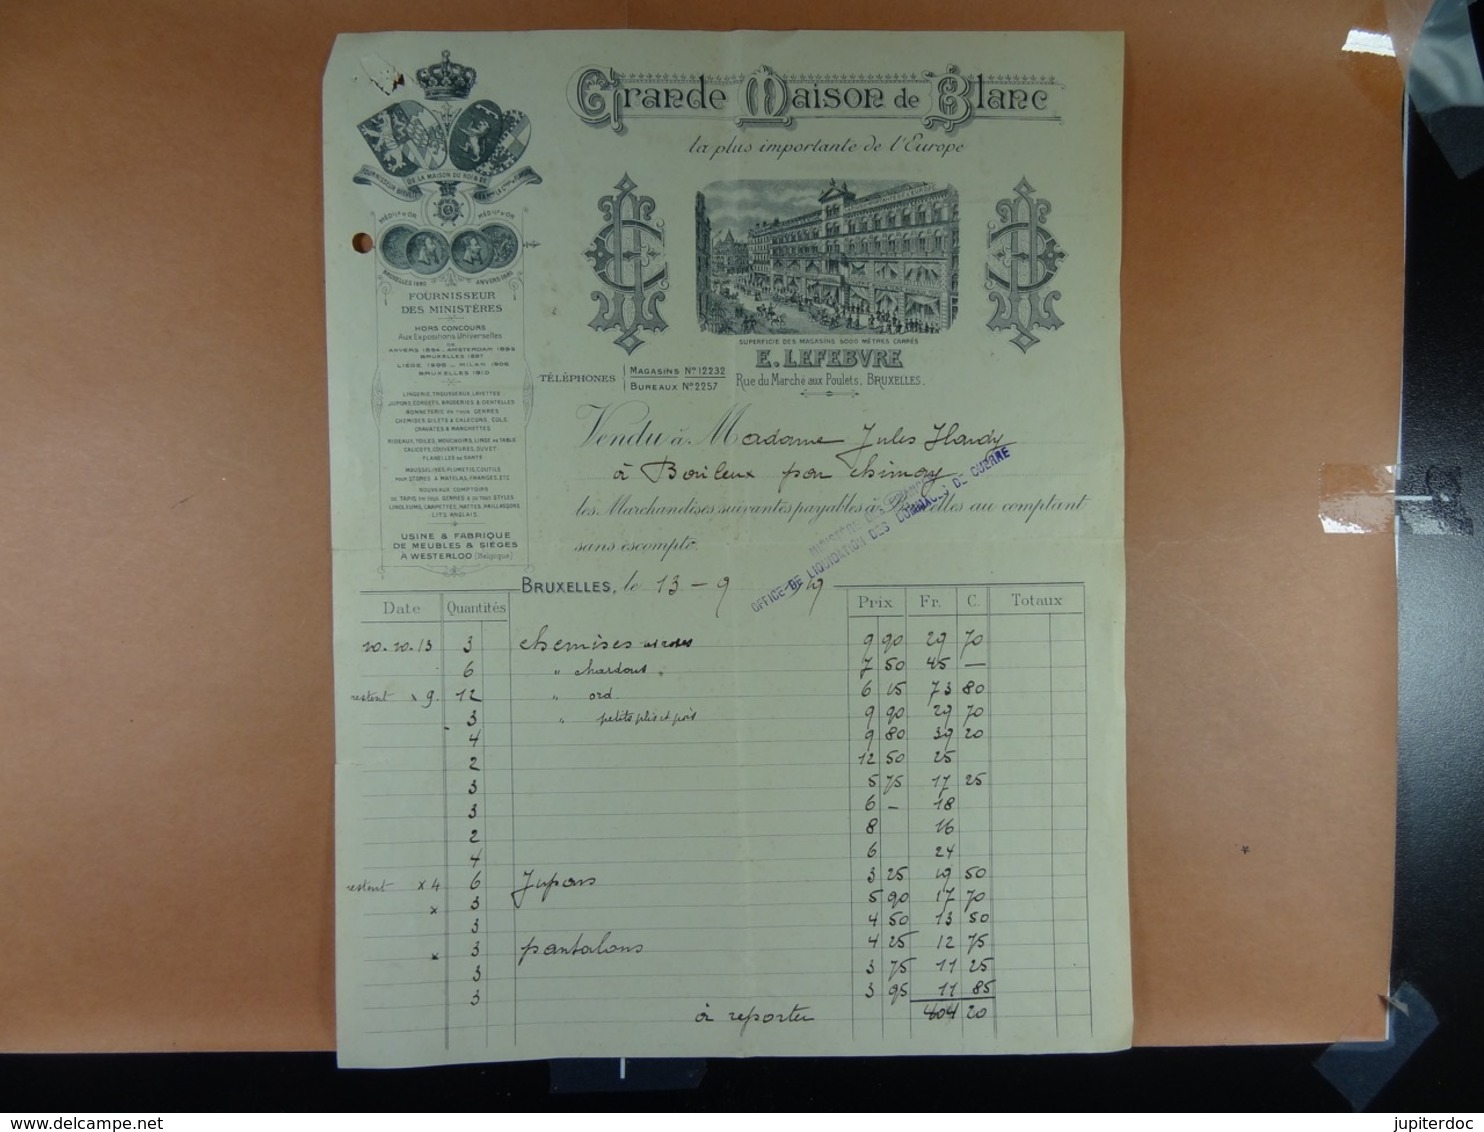 Grande Maison de Blanc
la plus importante de l'Europe
FOURNISSEUR BREVETÉ DE LA MAISON DU ROI & DE
MÉDLLE D'OR MÉDLLE D'OR
BRUXELLES 1880 ANVERS 1885
FOURNISSEUR
DES MINISTÈRES
HORS CONCOURS
Aux Expositions Universelles
DE
ANVERS 1894 - AMSTERDAM 1895
BRUXELLES 1897
LIÈGE 1905 - MILAN 1906
BRUXELLES 1910
LINGERIE, TROUSSEAUX, LAYETTES
JUPONS, CORSETS, BRODERIES & DENTELLES
BONNETERIE EN TOUS GENRES
CHEMISES GILETS & CALEÇONS, COLS,
CRAVATES & MANCHETTES
RIDEAUX, TOILES, MOUCHOIRS, LINGE DE TABLE
CALICOTS, COUVERTURES, DUVET
FLANELLES DE SANTÉ
MOUSSELINES, PLUMETIS, COUTILS
POUR STORES & MATELAS, FRANGES, ETC
NOUVEAUX COMPTOIRS
DE TAPIS EN TOUS GENRES & DE TOUS STYLES
LINOLEUMS, CARPETTES, NATTES, PAILLASSONS
LITS ANGLAIS.
USINE & FABRIQUE
DE MEUBLES & SIÈGES
A WESTERLOO (Belgique)
SUPERFICIE DES MAGASINS 5000 MÈTRES CARRÉS
E. LEFEBVRE
Rue du Marché aux Poulets, BRUXELLES.
TÉLÉPHONES MAGASINS No 12232
BUREAUX No 2257
Vendu à Madame Jules Hardy
à Bourleux par Chimay
les Marchandises suivantes payables à Bruxelles au comptant
sans escompte.
OFFICE DE LIQUIDATION DES DOMMAGES DE GUERRE
BRUXELLES, le 13 - 9 19
Date Quantités Prix Fr. C. Totaux
20.10.13 3 chemises 9 90 29 70
6 " chardons " 7 50 45 —
restent x 9. 12 " ord. 6 15 73 80
3 " petits plis et pois 9 90 29 70
4 9 80 39 20
2 12 50 25
3 5 75 17 25
3 6 - 18
2 8 16
4 6 24
restent x 4 6 Jupons 3 25 19 50
x 3 5 90 17 70
3 4 50 13 50
x 3 pantalons 4 25 12 75
3 3 75 11 25
3 3 95 11 85
à reporter 404 20
www.delcampe.net
jupiterdoc